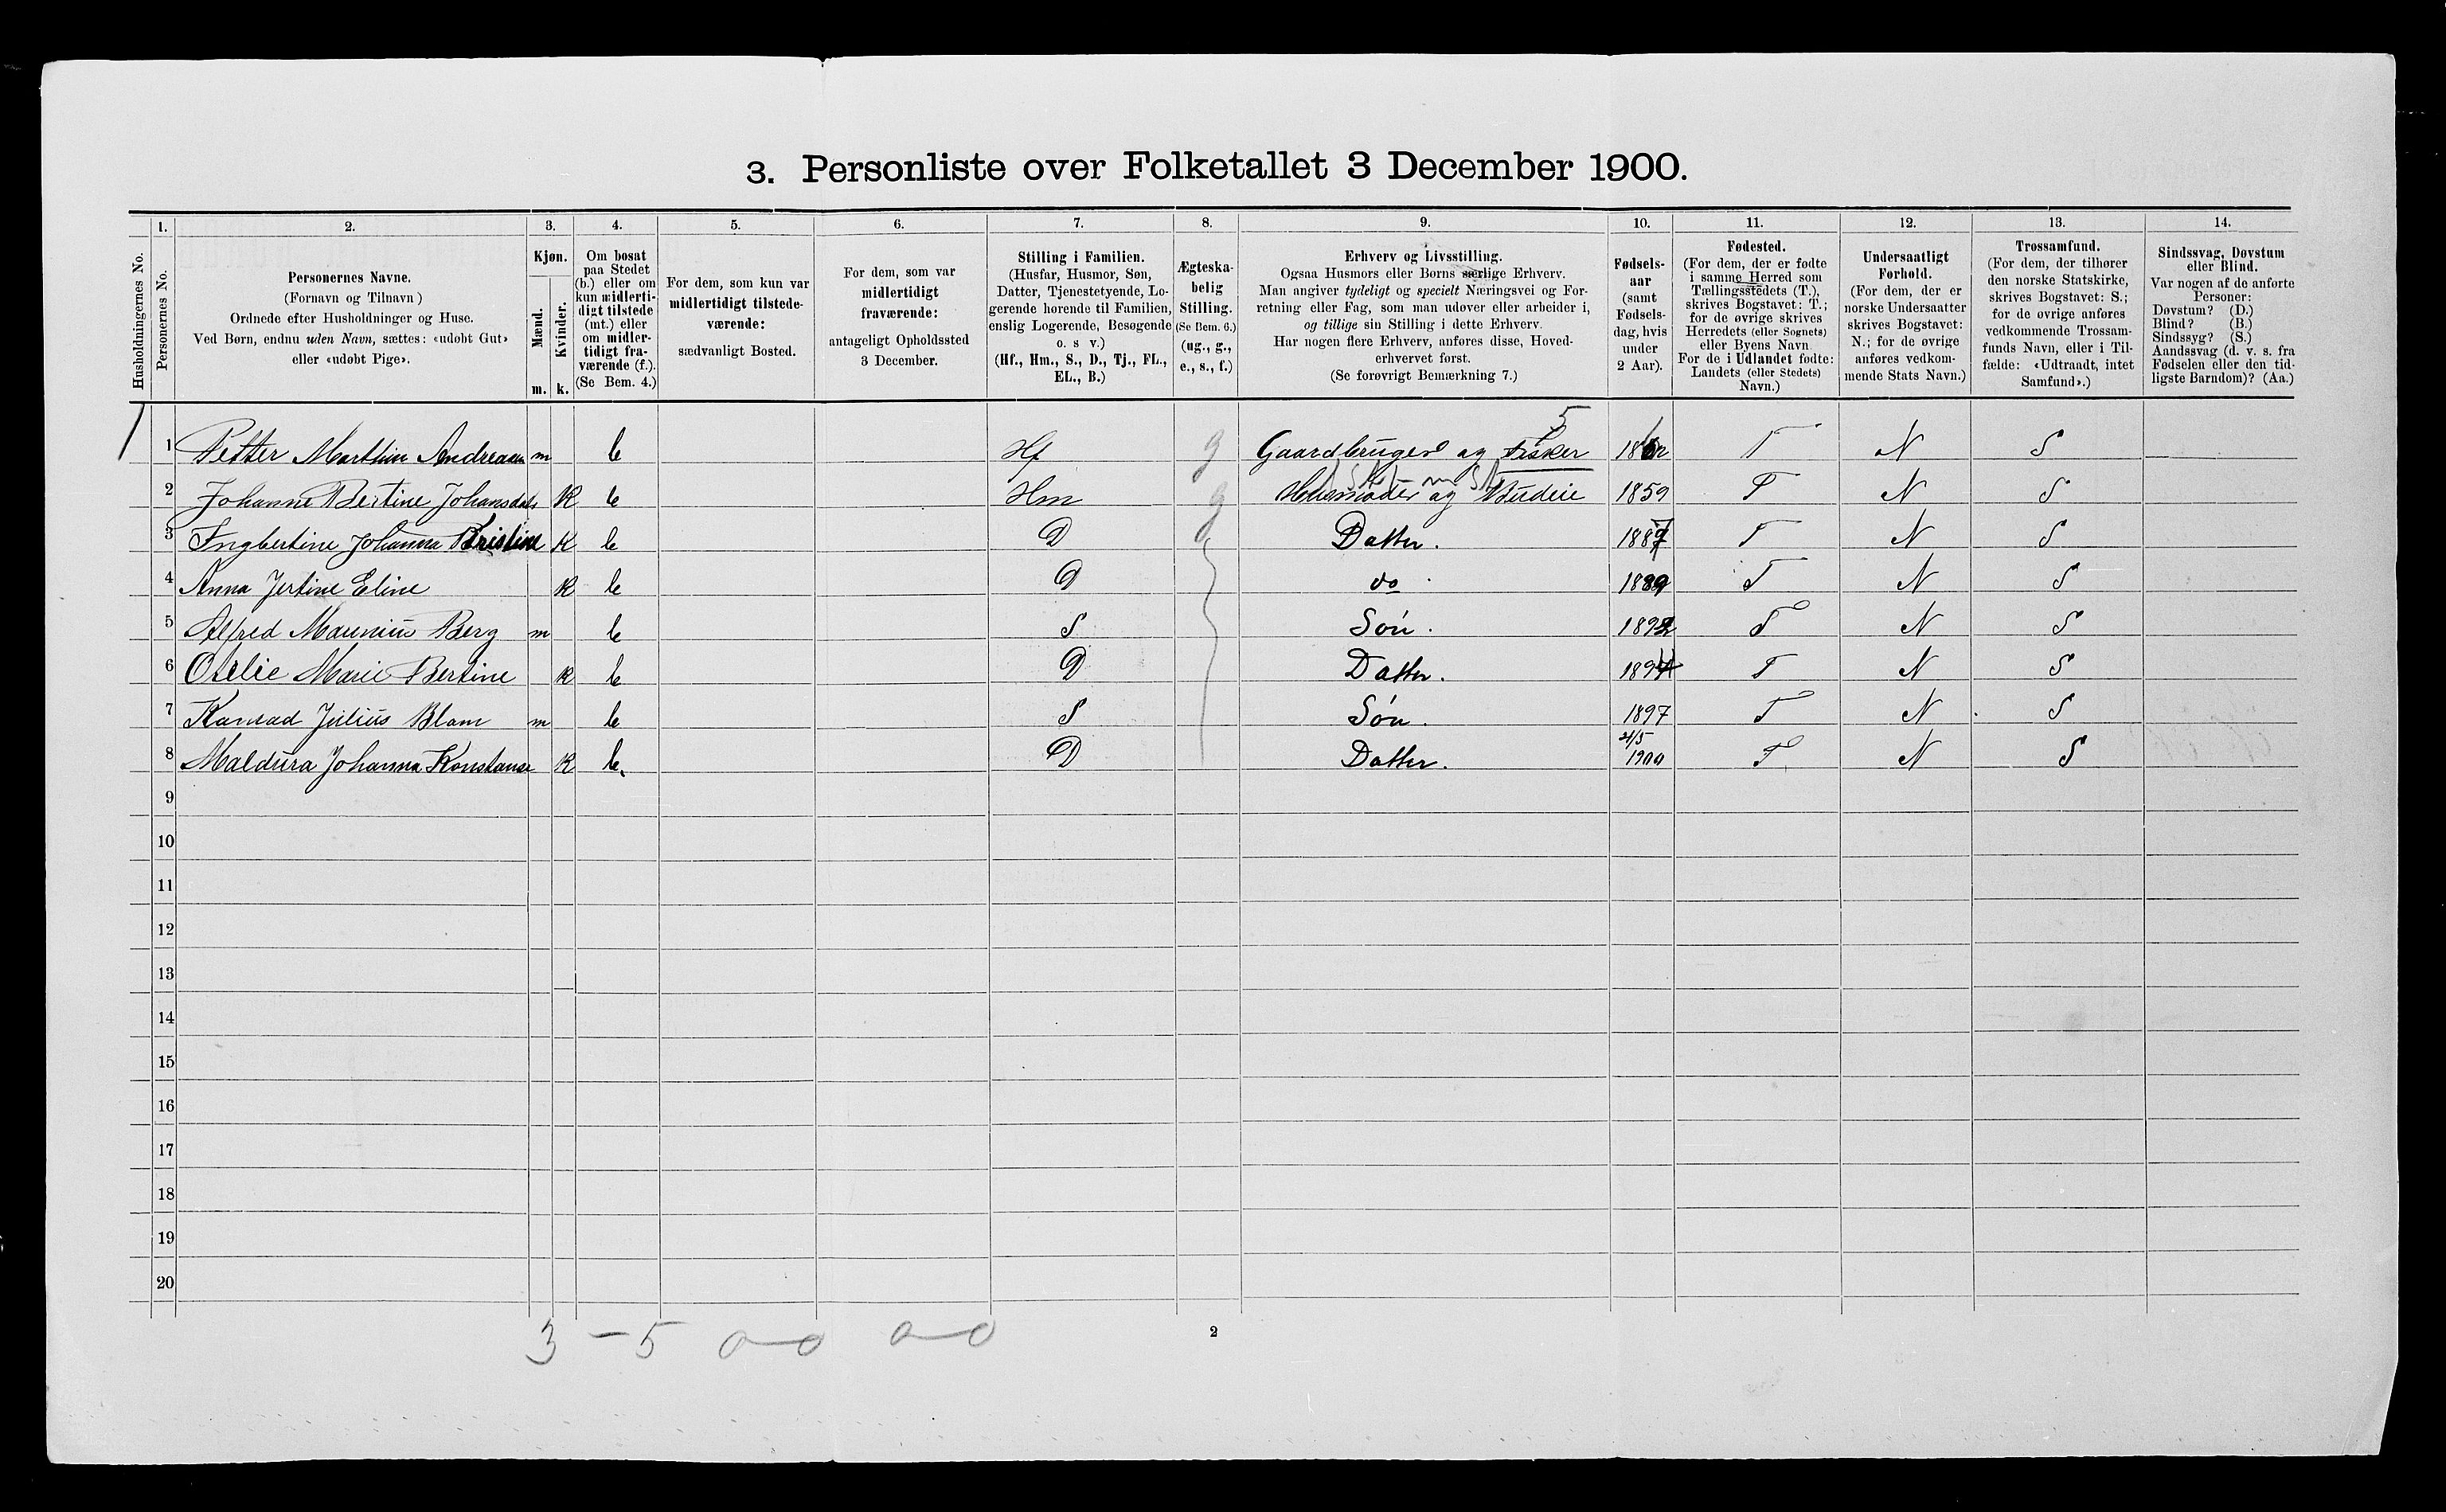 3. Personliste over Folketallet 3 December 1900.
1. 2. 3. 4. 5. 6. 7. 8. 9. 10. 11. 12. 13. 14.
Husholdningernes No.
Personernes No.
Personernes Navne.
(Fornavn og Tilnavn)
Ordnede efter Husholdninger og Huse.
Ved Børn, endnu uden Navn, sættes: «udøbt Gut»
eller «udøbt Pige».
Kjøn.
Mænd.
Kvinder.
m. k.
Om bosat
paa Stedet
(b.) eller om
kun midlerti-
digt tilstede
(mt.) eller
om midler-
tidigt fra-
værende (f.).
(Se Bem. 4.)
For dem, som kun var
midlertidigt tilstede-
værende:
sædvanligt Bosted.
For dem, som var
midlertidigt
fraværende:
antageligt Opholdssted
3 December.
Stilling i Familien.
(Husfar, Husmor, Søn,
Datter, Tjenestetyende, Lo-
gerende hørende til Familien,
enslig Logerende, Besøgende
o. s v.)
(Hf., Hm., S., D., Tj., FL.,
EL., B.)
Ægteska-
belig
Stilling.
(Se Bem. 6.)
(ug., g.,
e., s., f.)
Erhverv og Livsstilling.
Ogsaa Husmors eller Børns særlige Erhverv.
Man angiver tydeligt og specielt Næringsvei og For-
retning eller Fag, som man udøver eller arbeider i,
og tillige sin Stilling i dette Erhverv.
Har nogen flere Erhverv, anføres disse, Hoved-
erhvervet først.
(Se forøvrigt Bemærkning 7.)
Fødsels-
aar
(samt
Fødsels-
dag, hvis
under
2 Aar).
Fødested.
(For dem, der er fødte
i samme Herred som
Tællingsstedets (T.),
skrives Bogstavet: T.;
for de øvrige skrives
Herredets (eller Sognets)
eller Byens Navn
For de i Udlandet fødte:
Landets (eller Stedets)
Navn.)
Undersaatligt
Forhold.
(For dem, der er
norske Undersaatter
skrives Bogstavet:
N.; for de øvrige
anføres vedkom-
mende Stats Navn.)
Trossamfund.
(For dem, der tilhører
den norske Statskirke,
skrives Bogstavet: S.;
for de øvrige anføres
vedkommende Trossam-
funds Navn, eller i Til-
fælde: «Udtraadt, intet
Samfund».)
Sindssvag, Døvstum
eller Blind.
Var nogen af de anførte
Personer:
Døvstum? (D.)
Blind? (B.)
Sindssyg? (S.)
Aandssvag (d. v. s. fra
Fødselen eller den tid-
ligste Barndom)? (Aa.)
5
1 Petter Marthin Andreasen m b Hf g Gaardbruger og Fisker T N S
2 Johanne Bertine Johansdat K b Hm g Husmoder og Budeie 1859 T N S
3 Ingbertine Johanna Kristine K b D Datter. 1887 T N S
4 Anna Jertine Eline K b D do 1889 T N S
5 Alfred Maunius Berg m b S Søn. 1892 T N S
6 Otelie Marie Bertine K b D Datter. 1894 T N S
7 Konrad Julius Blom m b S Søn. 1897 T N S
21/5
8 Maldura Johanna Konstanse K b. D Datter. 1900 T N S
9
10
11
12
13
14
15
16
17
18
19
20
3 - 5 0-0 0-0
2